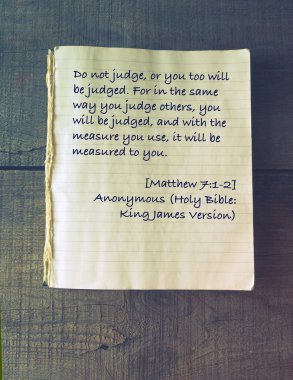 Do not judge, or you too will
be judged. For in the same
way you judge others, you
will be judged, and with the
measure you use, it will be
measured to you.
[Matthew 7:1-2]
Anonymous (Holy Bible:
King James Version)